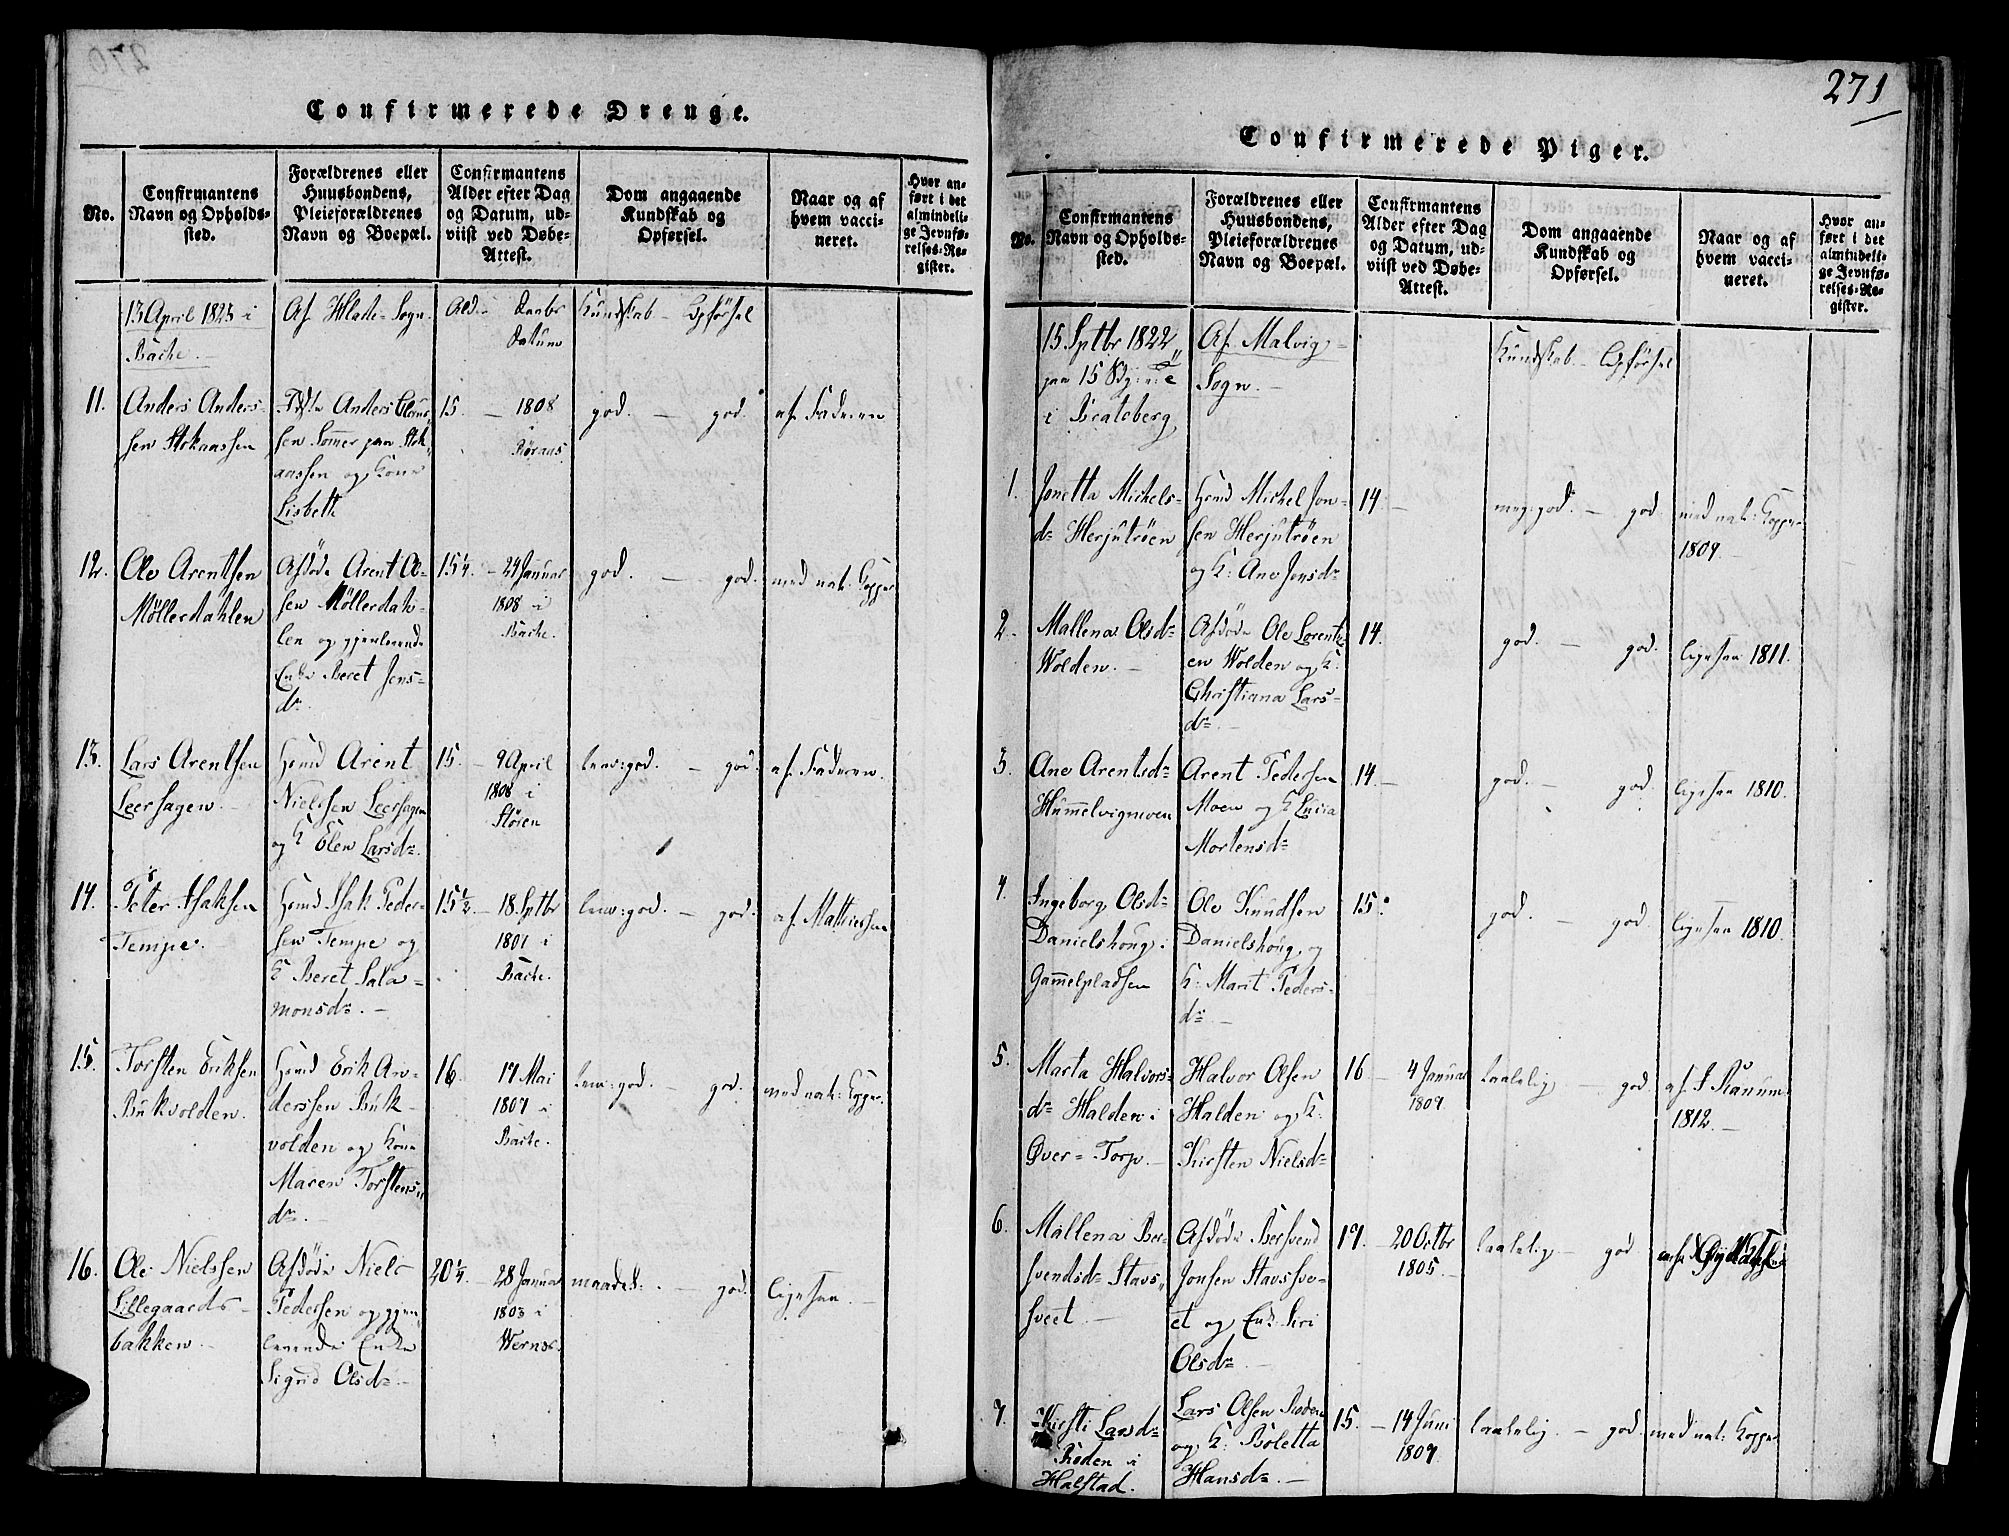 Confirmerede Drenge.
No.
Confirmantens
Navn og Opholds-
sted.
Forældrenes eller
Huusbondens,
Pleieforældrenes
Navn og Boepæl.
Confirmantens
Alder efter Dag
og Datum, ud-
viist ved Døbe-
Attest.
Dom angaaende
Kundskab og
Opførsel.
Naar og af
hvem vacci-
neret.
Hvor an-
ført i det
almindeli-
ge Jevnfø-
relses-Re-
gister.
13 April 1823 i
Bache.
Af Hlade-Sogn
Ald. - Daabs
Datum
Kundskab - Opførsel
11.
Anders Anders-
sen Stokaassen
Anders
sen Somer paa Stok
aassen og Kone
Lisbeth
15. - 1808
Røraas
god. - god.
af Faderen
12.
Ole Arentsen
Møllerdahlen
Afdøde Arent Ol-
sen Møllerdah-
len og gjenlevende
Enke Beret Jens-
dr.
15¼. - 24 Januar
1808 i
Bache.
god. - god.
med nat: Kopper
13.
Lars Arentsen
Leersagen
Huusmd Arent
Nielssen Leersagen
og K. Elen Larsdr.
15. - 9 April
1808 i
Støren
temm:god. - god.
af Faderen.
14.
Peter Isaksen
Tempe.
Huusmd Isak Peder-
sen Tempe og
K Beret Sala-
monsdr. -
15½. - 18 Sptbr
1807 i
Bache.
temm:god. - god.
af Mathiessen
15.
Torsten Eriksen
Bukvolden.
Huusmd Erik An-
derssen Buk-
volden og Kone
Maren Torstens-
dr. -
16. 17 Mai
1807 i
Bache.
tem:god. - god.
med nat: Kopper.
16.
Ole Nielssen
Lillegaards-
bakken.
Afdøde Niels
Pedersen og gjen-
levende Enke
Sigrid Olsdr. -
20¼. - 28 Januar
1803 i
Wernes.
maadel: - god.
ligesaa. -
271
Confirmerede Piger.
No.
Confirmantens
Navn og Opholds-
sted.
Forældrenes eller
Huusbondens,
Pleieforældrenes
Navn og Boepæl.
Confirmantens
Alder efter Dag
og Datum, ud-
viist ved Døbe-
Attest.
Dom angaaende
Kundskab og
Opførsel.
Naar og af
hvem vacci-
neret.
Hvor an-
ført i det
almindeli-
ge Jevnfø-
relses-Re-
gister.
15 Sptbr 1822
15
i Bratsberg
Af Malvig-
Sogn. -
Kundskab - Opførsel
1.
Jonetta Michels-
dr Herjutrøen
Huusmd Michel Jon-
sen Herjutrøen
og K: Ane Jensdr
14 -
meg:god. - god
med nat: Kopper
1809. -
2.
Mallena Olsdr
Wolden. -
Afdøde Ole Lorentz-
en Wolden og K:
Christiana Lars-
dr -
14.
god. - god.
ligesaa 1811.
3.
Ane Arentsdr
Hummelvigmoen
Arent Pedersen
Moen og K Lucia
Mortensdr
14. -
god. - god.
ligesaa 1810.
4.
Ingeborg Olsdr
Danielshoug i
Gammelpladsen
Ole Knudsen
Danielshoug, og
K: Marit Peders-
dr -
15.
god. - god.
ligesaa 1810.
5.
Marta Halvors-
dr Halden i
Øver-Torp. -
Halvor Olsen
Halden og K:
Kirsten Nielsdr
16 - 4 Januar
1807.
taalelig - god.
af J Ranum
1812. -
6.
Mallena Ber-
svendsdr Stavs-
sveet. -
Afdøde Bersvend
Jonsen Stavssve-
et og Enk: Siri
Olsdr. -
17. - 20 Octbr
1805. -
taalelig. - god
7.
Kirsti Larsdr
Røden i
Halstad.
Lars Olsen Røden
og K: Boletta
Hansdr. -
15. - 14 Juni
1807.
taalelig. - god.
med nat: Kopper